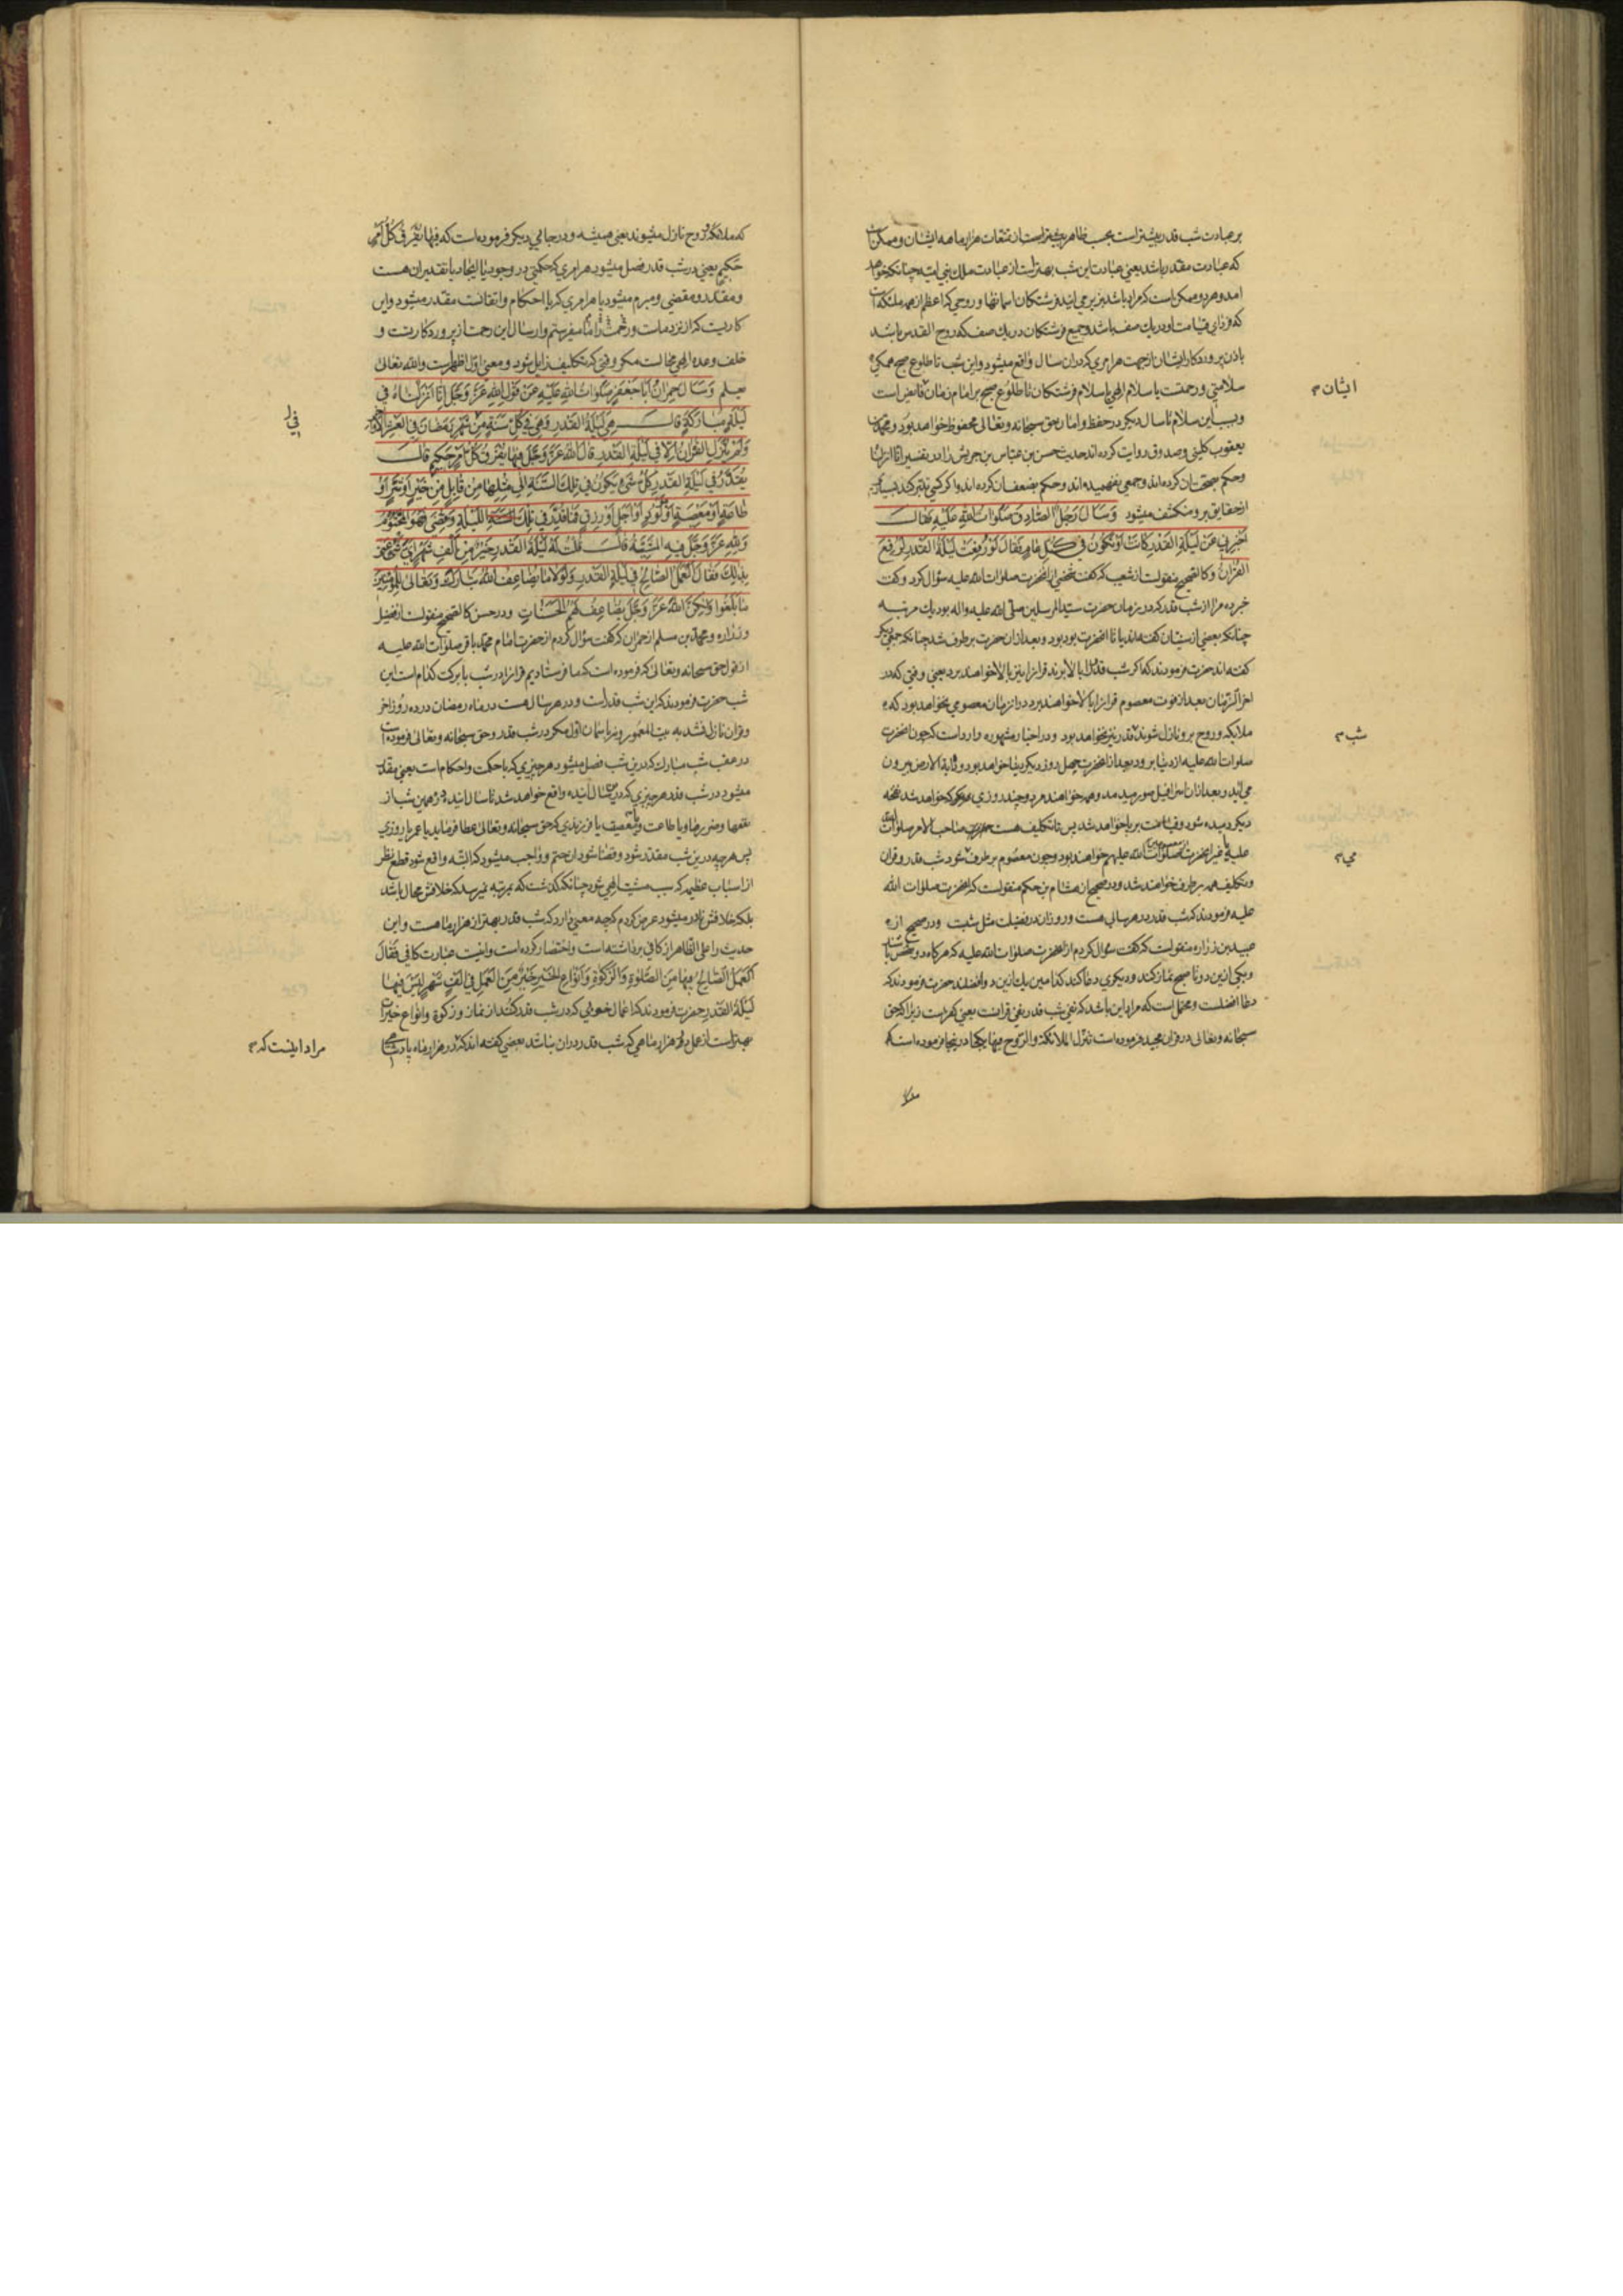 بر عبادت شب قدر بیشتر است بحسب ظاهر بیشتر است از تنعمات هزار ماهه ایشان و ممکن است
که عبادت مقدر باشد یعنی عبادت این شب بهتر است از عبادت ملك بنی امیه چنانکه خواهد
امد و هر دو ممکن است که مراد باشد بزیر می ایند فرشتکان اسمانها و روحی که اعظم از همه ملئکه است
که فردای قیامت او در یك صف باشد و جمیع فرشتکان در یك صف که روح القدس باشد
باذن پروردکار ایشان از جهت هر امری که در ان سال واقع میشود و این شب تا طلوع صبح همکی
سلامتی و رحمتست یا سلام الهی یا سلام فرشتکان تا طلوع صبح بر امام زمان فایض است
ایشان
و بسبب این سلام تا سال دیکر در حفظ و امان حق سبحانه و تعالی محفوظ خواهد بود و محمد بن
یعقوب کلینی و صدوق روایت کرده اند حدیث حسن بن عباس بن حریش را در تفسیر انا انزلنا
و حکم بصحت ان کرده اند و جمعی نفهمیده اند و حکم بضعف ان کرده اند و اکر کسی تدبر کند بسیاری
از حقایق برو منکشف میشود وَسَاَلَ رَجُلٌ الصَّادِقَ صَلَوَاتُ اللهِ عَلَیْهِ فَقَالَ
اَخْبِرْنِي عَنْ لَیْلَةِ الْقَدْرِ کَانَتْ اَوْ تَکُونُ فِي کُلِّ عَامٍ فَقَالَ لَوْ رُفِعَتْ لَیْلَةُ الْقَدْرِ لَرُفِعَ
الْقُرْاٰنُ و کالصحیح منقولست از شعیب که کفت شخصی از انحضرت صلوات الله علیه سؤال کرد و کفت
خبر ده مرا از شب قدر که در زمان حضرت سید المرسلین صلی الله علیه و اله بود یك مرتبه
چنانکه بعضی از سنیان کفته اند یا تا انحضرت بود بود و بعد از ان حضرت بر طرف شد چنانکه جمعی دیکر
کفته اند حضرت فرمودند که اکر شب قدر را بالا برند قرانرا نیز بالا خواهند برد یعنی وقتی که در
اخر الزمان بعد از فوت معصوم قرانرا بالا خواهند برد در انزمان معصومی نخواهد بود که
ملایکه و روح برو نازل شوند قدر نیز نخواهد بود و در اخبار مشهوره وارد است که چون انحضرت
شب
صلوات الله علیه از دنیا برود بعد از انحضرت چهل روز دیکر دنیا خواهد بود و دابة الارض بیرون
می اید و بعد از ان اسرافیل صور میدمد و همه خواهند مرد و چند روزی خواهد شد نفخه
دیکر دمیده شود و قیامت بر پا خواهد شد پس تا تکلیف هست صاحب الامر صلوات الله
علیه یا غیر انحضرت صلوات الله علیهم خواهند بود و چون معصوم بر طرف شود شب قدر و قران
می
و تکلیف همه بر طرف خواهند شد و در صحیح از هشام بن حکم منقولست که انحضرت صلوات الله
علیه فرمودند که شب قدر در هر سالی هست و روز ان در فضیلت مثل شبست و در صحیح از
عبید بن زراره منقولست که کفت سؤال کردم از انحضرت صلوات الله علیه که هرکاه دو شخص باشند
و یکی ازین دو تا صبح نماز کند و دیکری دعا کند کدامین یك ازین دو افضلند حضرت فرمودند که
دعا افضلست و محتمل است که مراد این باشد که نفی شب قدر نفی قرانست یعنی کفر است زیرا که حق
سبحانه و تعالی در قران مجید فرموده است تنزل الملائکة و الروح فیها یکجا در ینجا فرموده است
که ملائکه و روح نازل میشوند یعنی همیشه و در جای دیکر فرموده است که فِیهَا یُفْرَقُ کُلُّ اَمْرٍ
حَکِیمٍ یعنی در شب قدر فصل میشود هر امری که حکمتی در وجود یا ایجاد یا تقدیر ان هست
و مقدر و مقضی و مبرم میشود یا هر امری که با احکام و اتقانست مقدر میشود و این
کاریست که از نزد ماست و رحمت را ما میفرستیم و ارسال این رحمت از پروردکار تست و
خلف وعده الهی محالست مکر وقتی که تکلیف زایل شود و معنی اول اظهر است والله تعالی
یعلم وَسَاَلَ حُمْرَانُ اَبَا جَعْفَرٍ صَلَوَاتُ اللهِ عَلَیْهِ عَنْ قَوْلِ اللهِ عَزَّ وَجَلَّ اِنَّا اَنْزَلْنَاهُ فِي
لَیْلَةٍ مُبَارَکَةٍ قَالَ هِيَ لَیْلَةُ الْقَدْرِ وَهِيَ فِي کُلِّ سَنَةٍ مِنْ شَهْرِ رَمَضَانَ فِي الْعَشْرِ الْاَوَاخِرِ
وَلَمْ یُنْزَلِ الْقُرْاٰنُ اِلَّا فِي لَیْلَةِ الْقَدْرِ قَالَ اللهُ عَزَّ وَجَلَّ فِیهَا یُفْرَقُ کُلُّ اَمْرٍ حَکِیمٍ قَالَ
یُقَدَّرُ فِي لَیْلَةِ الْقَدْرِ کُلُّ شَيْءٍ یَکُونُ فِي تِلْكَ السَّنَةِ اِلٰی مِثْلِهَا مِنْ قَابِلٍ مِنْ خَیْرٍ اَوْ شَرٍّ اَوْ
طَاعَةٍ اَوْ مَعْصِیَةٍ اَوْ مَوْلُودٍ اَوْ اَجَلٍ اَوْ رِزْقٍ فَمَا قُدِّرَ فِي تِلْكَ اللَّیْلَةِ وَقُضِيَ فَهُوَ الْمَحْتُومُ
وَلِلّٰهِ عَزَّ وَجَلَّ فِیهِ الْمَشِیَّةُ قَالَ قُلْتُ لَهُ لَیْلَةُ الْقَدْرِ خَیْرٌ مِنْ اَلْفِ شَهْرٍ اَيَّ شَيْءٍ عَنٰی
بِذٰلِكَ فَقَالَ الْعَمَلُ الصَّالِحُ فِي لَیْلَةِ الْقَدْرِ وَلَوْلَا مَا یُضَاعِفُ اللهُ تَبَارَكَ وَتَعَالٰی لِلْمُؤْمِنِینَ
مَا بَلَغُوا وَلٰکِنَّ اللهَ عَزَّ وَجَلَّ یُضَاعِفُ لَهُمُ الْحَسَنَاتِ و در حسن کالصحیح منقولست از فضیل
و زراره و محمد بن مسلم از حمران که کفت سؤال کردم از حضرت امام محمد باقر صلوات الله علیه
از قول حق سبحانه و تعالی که فرموده است که ما فرستادیم قرانرا در شب با برکت کدام است این
شب حضرت فرمودند که این شب قدر است و در هر سال هست در ماه رمضان در ده روز اخر
و قران نازل نشد به بیت المعمور و باسمان اول مکر در شب قدر و حق سبحانه و تعالی فرموده است
در عقب شب مبارك که درین شب فصل میشود هر چیزی که با حکمت و احکام است یعنی مقدر
میشود در شب قدر هر چیزی که درین سال اینده واقع خواهد شد تا سال اینده در همین شب از
نفعها و ضررها و یا طاعت و یا معصیت یا فرزندی که حق سبحانه و تعالی عطا فرماید یا عمر یا روزی
پس هر چه درین شب مقدر شود و قضا شود ان حتم و واجب میشود که البته واقع شود قطع نظر
از اسباب عظیمه که سبب مشیت الهی شود چنانکه کذشت که بمرتبه نمیرسد که خلافش محال باشد
بلکه خلافش نادر میشود عرض کردم که چه معنی دارد که شب قدر بهتر از هزار ماهست و این
حدیث را علی الظاهر از کافی برداشته است و اختصار کرده است و اینست عبارت کافی فَقَالَ
اَلْعَمَلُ الصَّالِحُ فِیهَا مِنَ الصَّلٰوةِ وَالزَّکٰوةِ وَاَنْوَاعِ الْخَیْرِ خَیْرٌ مِنَ الْعَمَلِ فِي اَلْفِ شَهْرٍ لَیْسَ فِیهَا
لَیْلَةُ الْقَدْرِ حضرت فرمودند که اعمال خوبی که در شب قدر کنند از نماز و زکوة و انواع خیرات
بهتر است از عمل در هزار ماهی که شب قدر در ان نباشد بعضی کفته اند که در هزار ماه پادشاهی
مراد اینست که